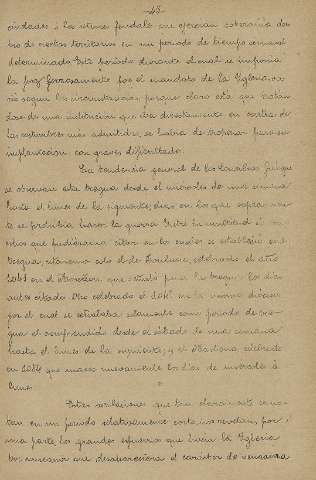 -45-
ciudades y los señores feudales que ejercían soberanía den
tro de ciertos territorios en un periodo de tiempo
determinado. Este periodo durante el cual se imponía
la paz forzosamente por el mandato de la Iglesia, va
ría según las circunstancias porque claro está que tratan
dose de una institución que iba directamente en contra de
las costumbres más admitidas, se había de tropezar para su
implantación con graves dificultades.
La tendencia general de los Concilios fué que
se observara esta tregua desde el miércoles de una semana
hasta el lunes de la siguiente; días en los que expresamen
te se prohibía hacer la guerra. Entre la multitud de con
cilios que pudieramos citar en los cuales se estableció esta
tregua citaremos solo el de celebrado el año
1041 en el que señaló para la tregua los días
antes citados. Otro celebrado el 1047 en la misma diócesis
por el cual se señalaba solamente como periodo de tre
gua el comprendido desde el sábado de una semana
hasta el lunes de la siguiente; y el celebrado
en 1054 que marca nuevamente los días de miércoles á
lunes.
Estas que tan claramente cons
tan en un periodo relativamente corto nos revelan, por
una parte los grandes esfuerzos que hacía la Iglesia
por conseguir que desapareciera el carácter de venganza